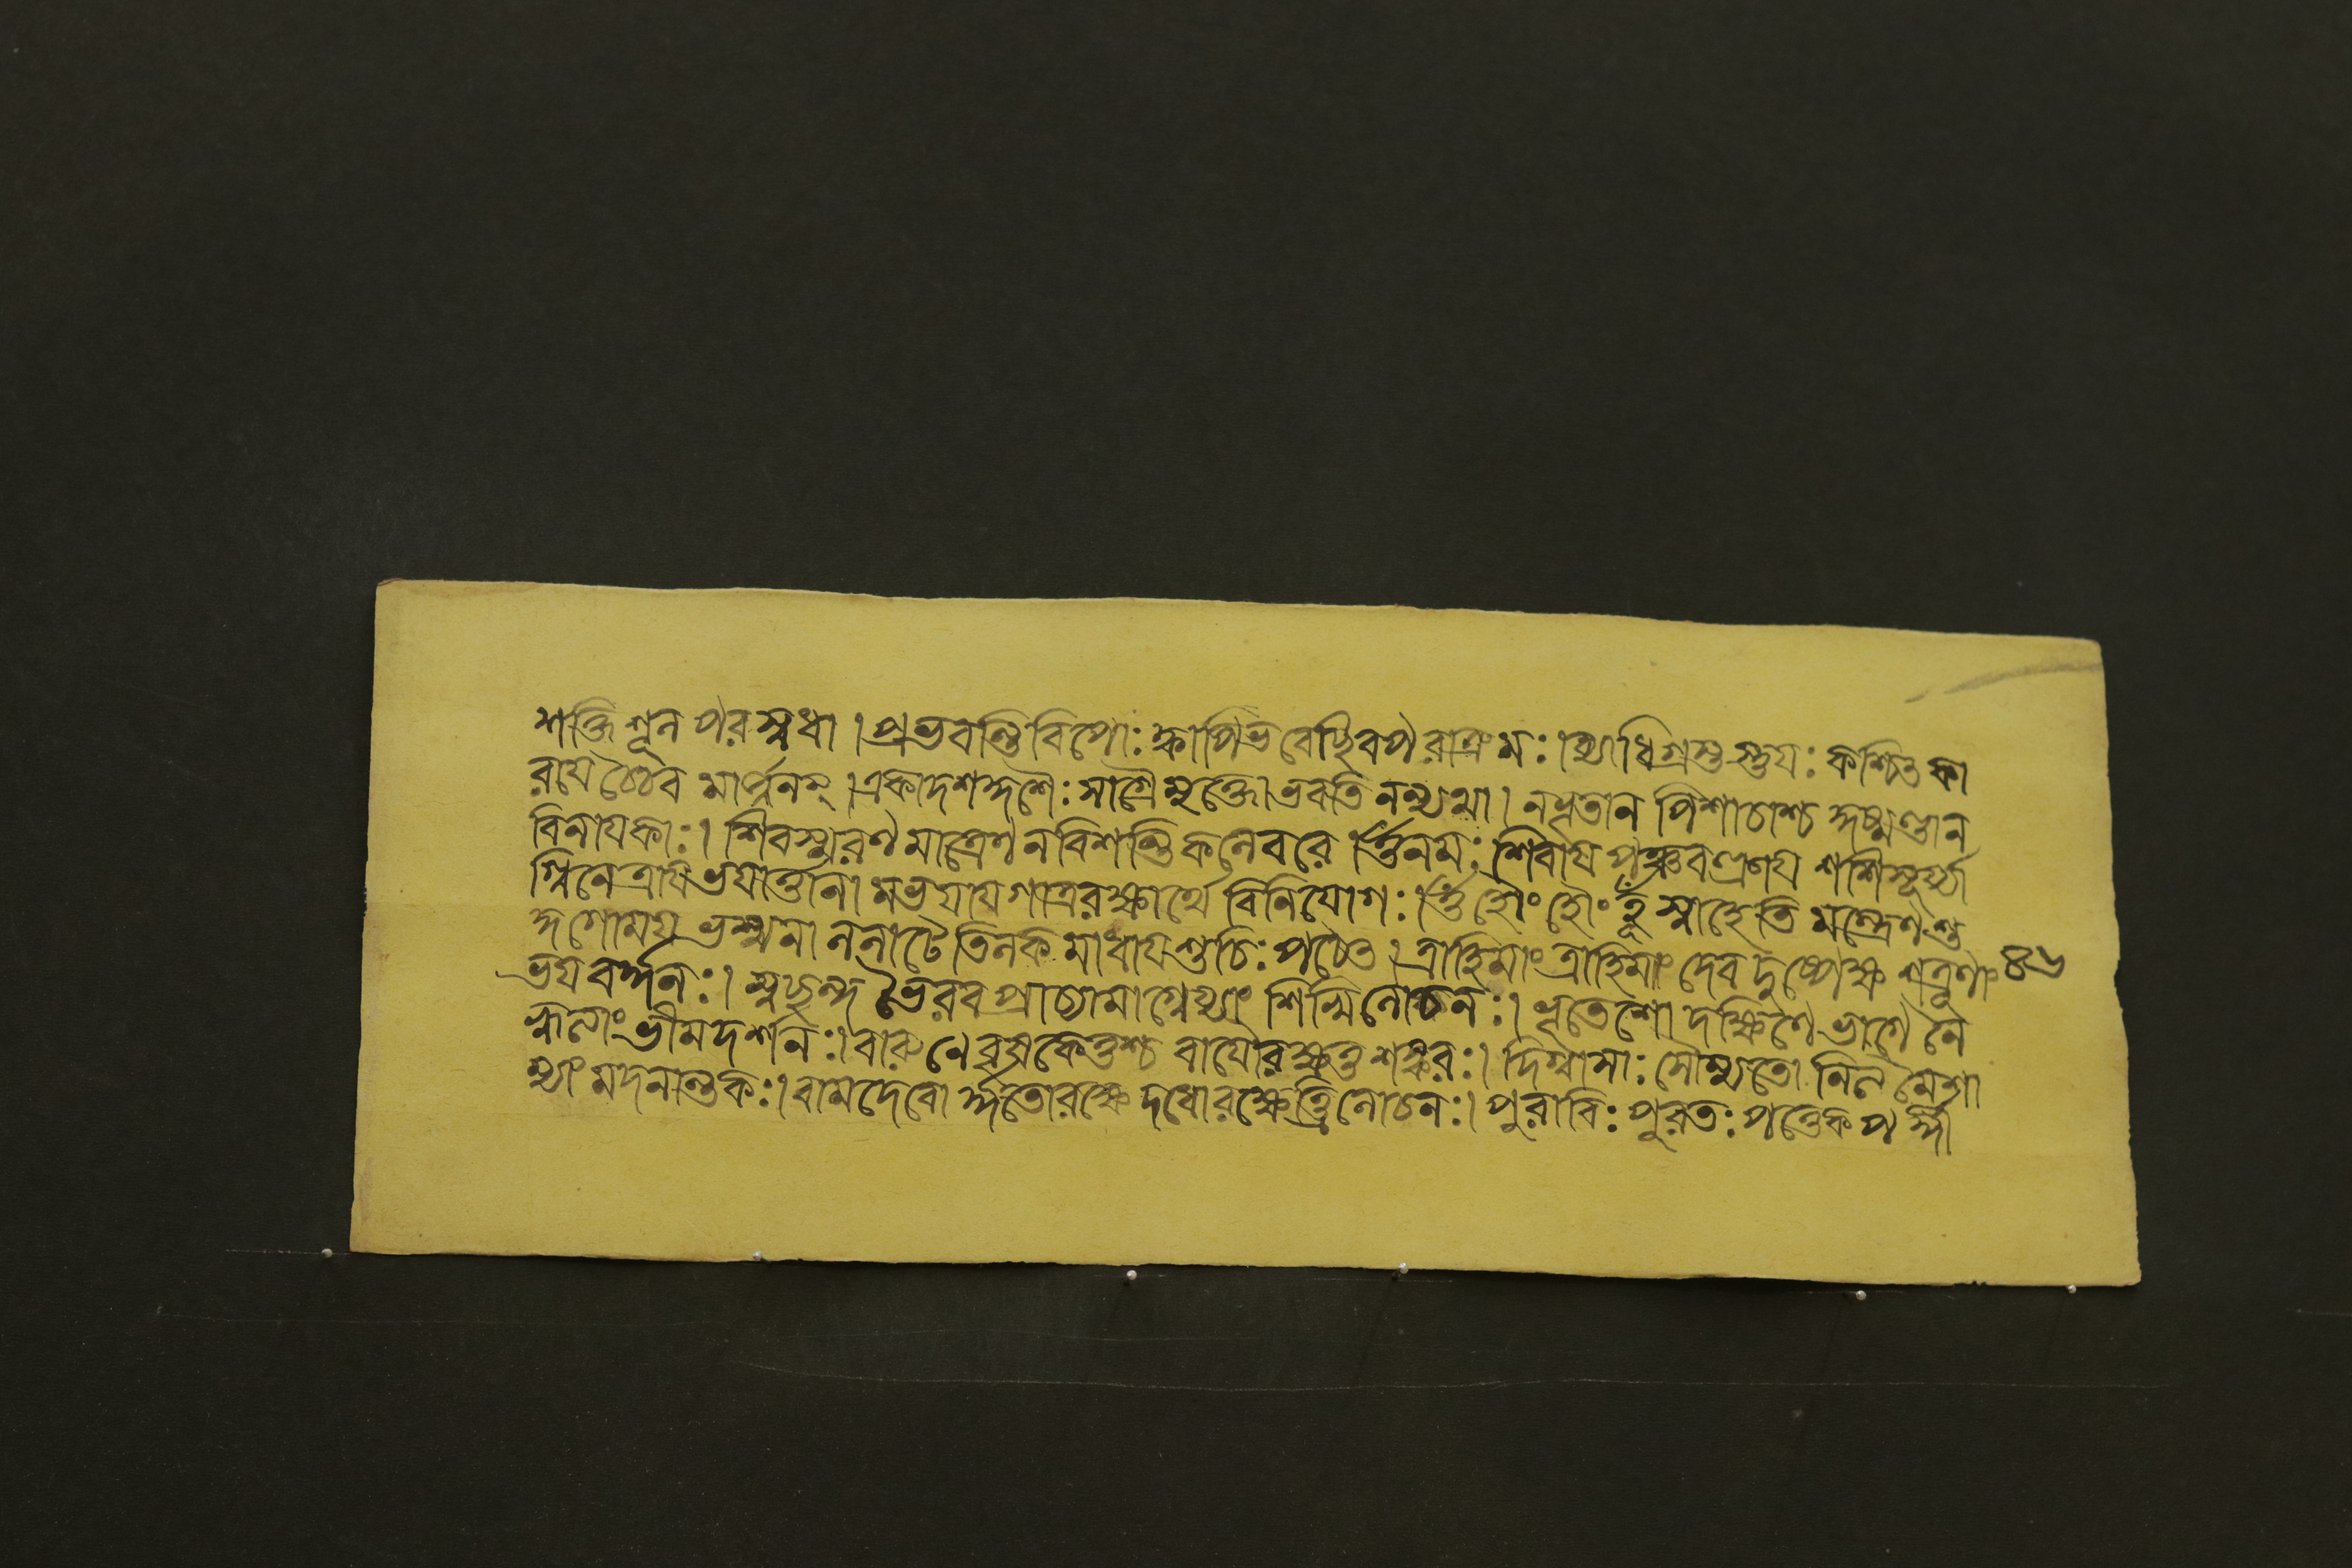 শক্তি শূল পরস্বধা । প্রভবন্তি বিপোঃ ক্বাপি ভবেচ্ছিবপরাক্রমঃ । ব্যাধিগ্রস্তস্তু যঃ কশ্চিৎ কা
রায়েচ্চৈব মার্জ্জনম্ । একাদশ মুক্তো ভবতি নান্যথা । ন ভূতা ন পিশাচাশ্চ কুষ্মাণ্ডা ন
বিনায়কাঃ । শিবস্মরণ মাত্রেণ ন বিশন্তি কলেবরে । ওঁ নমঃ শিবায় পঞ্চবক্ত্রায় শশিসূর্য্যা
গ্নিনেত্রায় ভয়ার্ত্তানামভয়ায় গাত্ররক্ষার্থে বিনিয়োগঃ । ওঁ হৌং হৌং হূঁ স্বাহেতি মন্ত্রেণ শু
দ্ধগোময় ভস্মনা ললাটে তিলকমাধায় শুচিঃ পঠেৎ । ত্রাহি মাং ত্রাহি মাং দেব দুষ্প্রেক্ষ শত্রূণাং ৪৬
ভয়বর্দ্ধনঃ । স্বচ্ছন্দ ভৈরব প্রাচ্যামাগ্নেয্যাং শিখিলোচনঃ । ভূতেশো দক্ষিণে ভাগে নৈ
র্ঋত্যাং ভীমদর্শনঃ । বারুণে বৃষকেতুশ্চ বায়ৌ রক্ষতু শঙ্করঃ । দিগ্বাসাঃ সৌম্যতো নিত্যমৈশা
ন্যাং মদনান্তকঃ । বামদেবোর্দ্ধতো রক্ষেদধো রক্ষেত্ত্রিলোচনঃ । পুরারিঃ পুরতঃ পাতু কপর্দ্দী